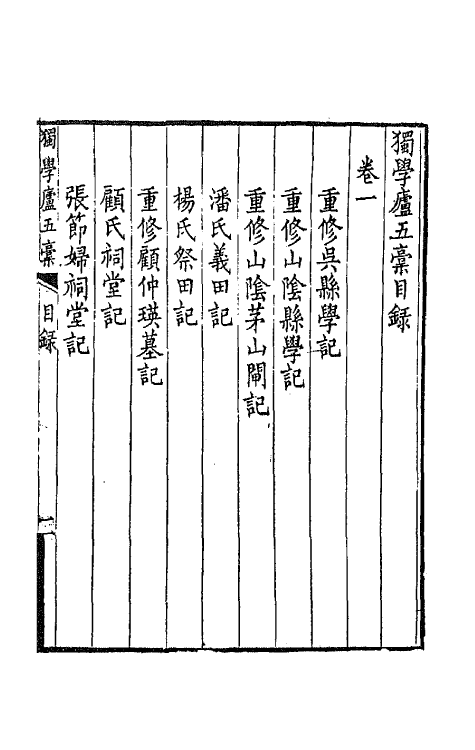 獨學廬五稾目録
卷一
重修吳縣學記
重修山陰縣學記
重修山陰茅山閘記
潘氏義田記
楊氏祭田記
重修顧仲瑛墓記
顧氏祠堂記
張節婦祠堂記
獨學廬五稾 目録 一